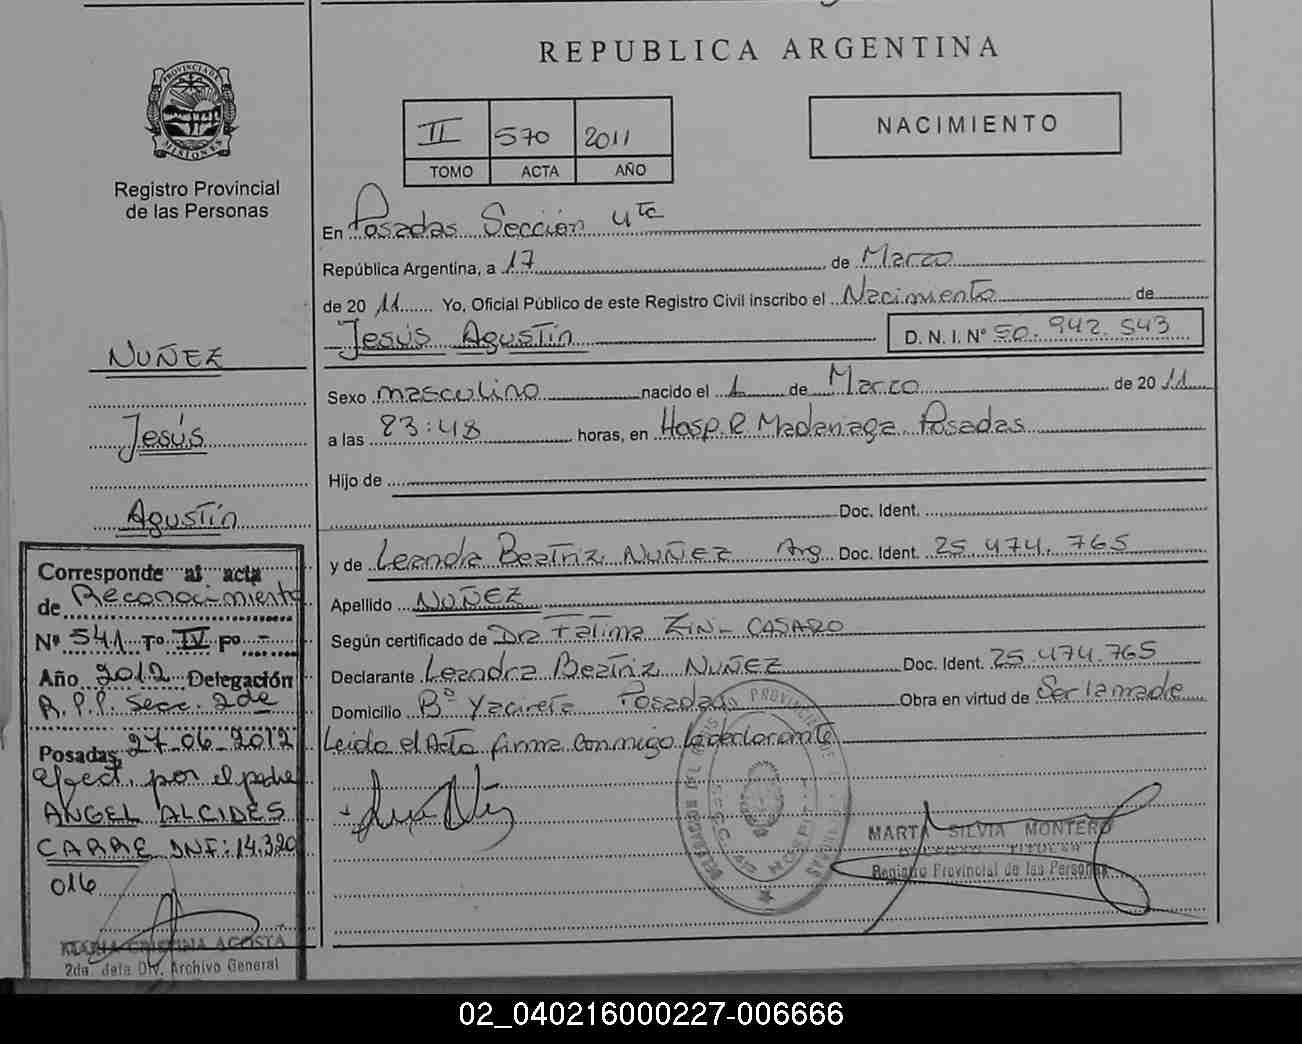 REPUBLICA ARGENTINA
PROVINCIA DE
MISIONES
Registro Provincial
de las Personas
II 570 2011
TOMO ACTA AÑO
NACIMIENTO
En Posadas Sección 4ta
República Argentina, a 17 de Marzo
de 2011 Yo, Oficial Público de este Registro Civil inscribo el Nacimiento de
Jesús Agustín D. N. I. Nº 50.942.543
Sexo masculino nacido el 1 de Marzo de 2011
a las 23:48 horas, en Hosp. R. Madariaga Posadas
Hijo de
Doc. Ident.
y de Leandra Beatriz NUÑEZ Arg Doc. Ident. 25.474.765
Apellido NUÑEZ
Según certificado de Dra Fatima CASARO
Declarante Leandra Beatriz NUÑEZ Doc. Ident. 25.474.765
Domicilio Bº Yacireta Posadas Obra en virtud de Ser la madre
Leido el Acta firma conmigo la declarante
MARTA SILVIA MONTERO
Registro Provincial de las Personas
NUÑEZ
Jesús
Agustín
Corresponde al acta
de Reconocimiento
Nº 541 Tº IV Fº -
Año 2012 Delegación
R.P.P. Secc. 2da
Posadas, 27-06-2012
efect. por el padre
ANGEL ALCIDES
CARRE DNI: 14.320
016
MARIA CRISTINA ACOSTA
2da. Jefa Div. Archivo General
02_040216000227-006666